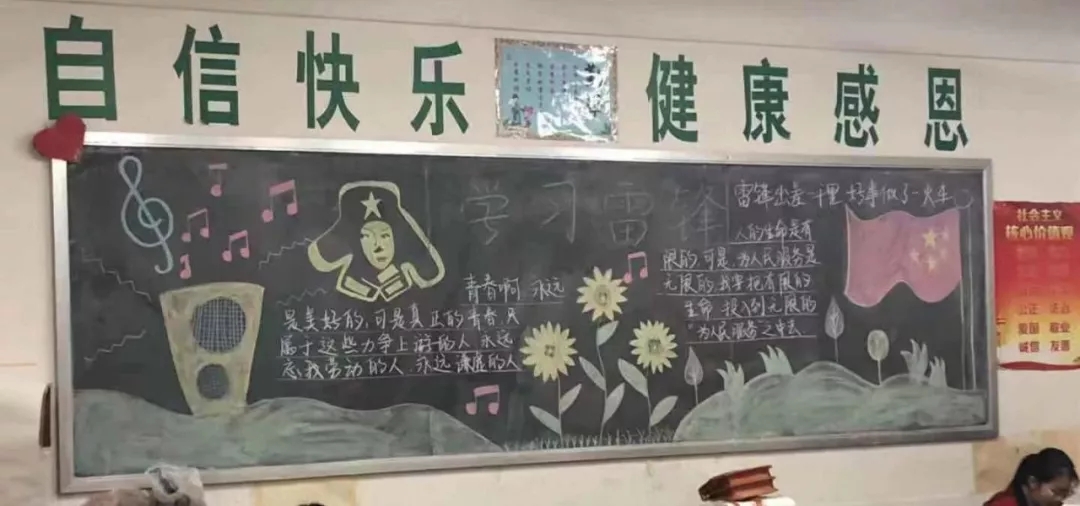 自信快乐 健康感恩
学习雷锋
青春啊 永远
是美好的,可是真正的青春,只
属于这些力争上游的人,永远
忘我劳动的人,永远谦虚的人
雷锋出差一千里 好事做了一火车
人的生命是有
限的,可是,为人民服务是
无限的,我要把有限的
生命,投入到无限的
"为人民服务之中去
社会主义
核心价值观
公正 法治
爱国 敬业
诚信 友善